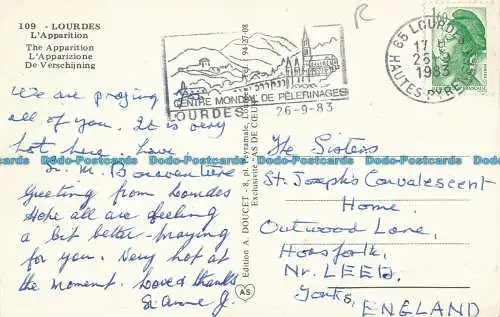 109 - LOURDES
L'Apparition
The Apparition
L'Apparizione
De Verschijning
We are praying for
all of you. It is very
hot here. Love
Sr. M. Bonaventure
Greeting from Lourdes
Hope all are feeling
a bit better - praying
for you. Very hot at
the moment. Love & thanks
Sr Anne J.
CENTRE MONDIAL DE PÈLERINAGES
LOURDES
26-9-83
65 LOURDES
17
26
1983
HAUTES-PYRENEES
Edition A. DOUCET - 8, pl. Peyramale, Lourdes
94-27-08
Exclusivité "AS DE CŒUR"
AS
The Sisters
St. Joseph's Convalescent
Home.
Outwood Lane,
Horsforth,
Nr. LEEDS,
Yorks,
ENGLAND
Postcards Postcards Postcards Postcards Postcards Postcards